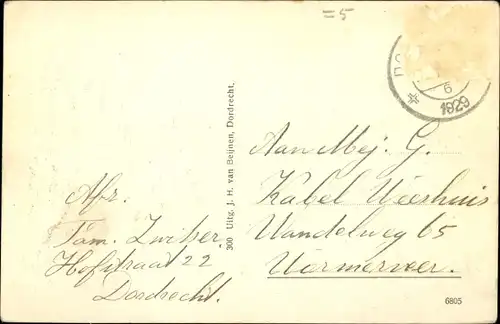 =5
DO
6
1929
300 Uitg. J. H. van Beijnen, Dordrecht.
Aan Mej. G.
Kabel
Wandelweg 65
Wormerveer.
Afz.
Fam. Zwitser
Hofstraat 22
Dordrecht.
6805